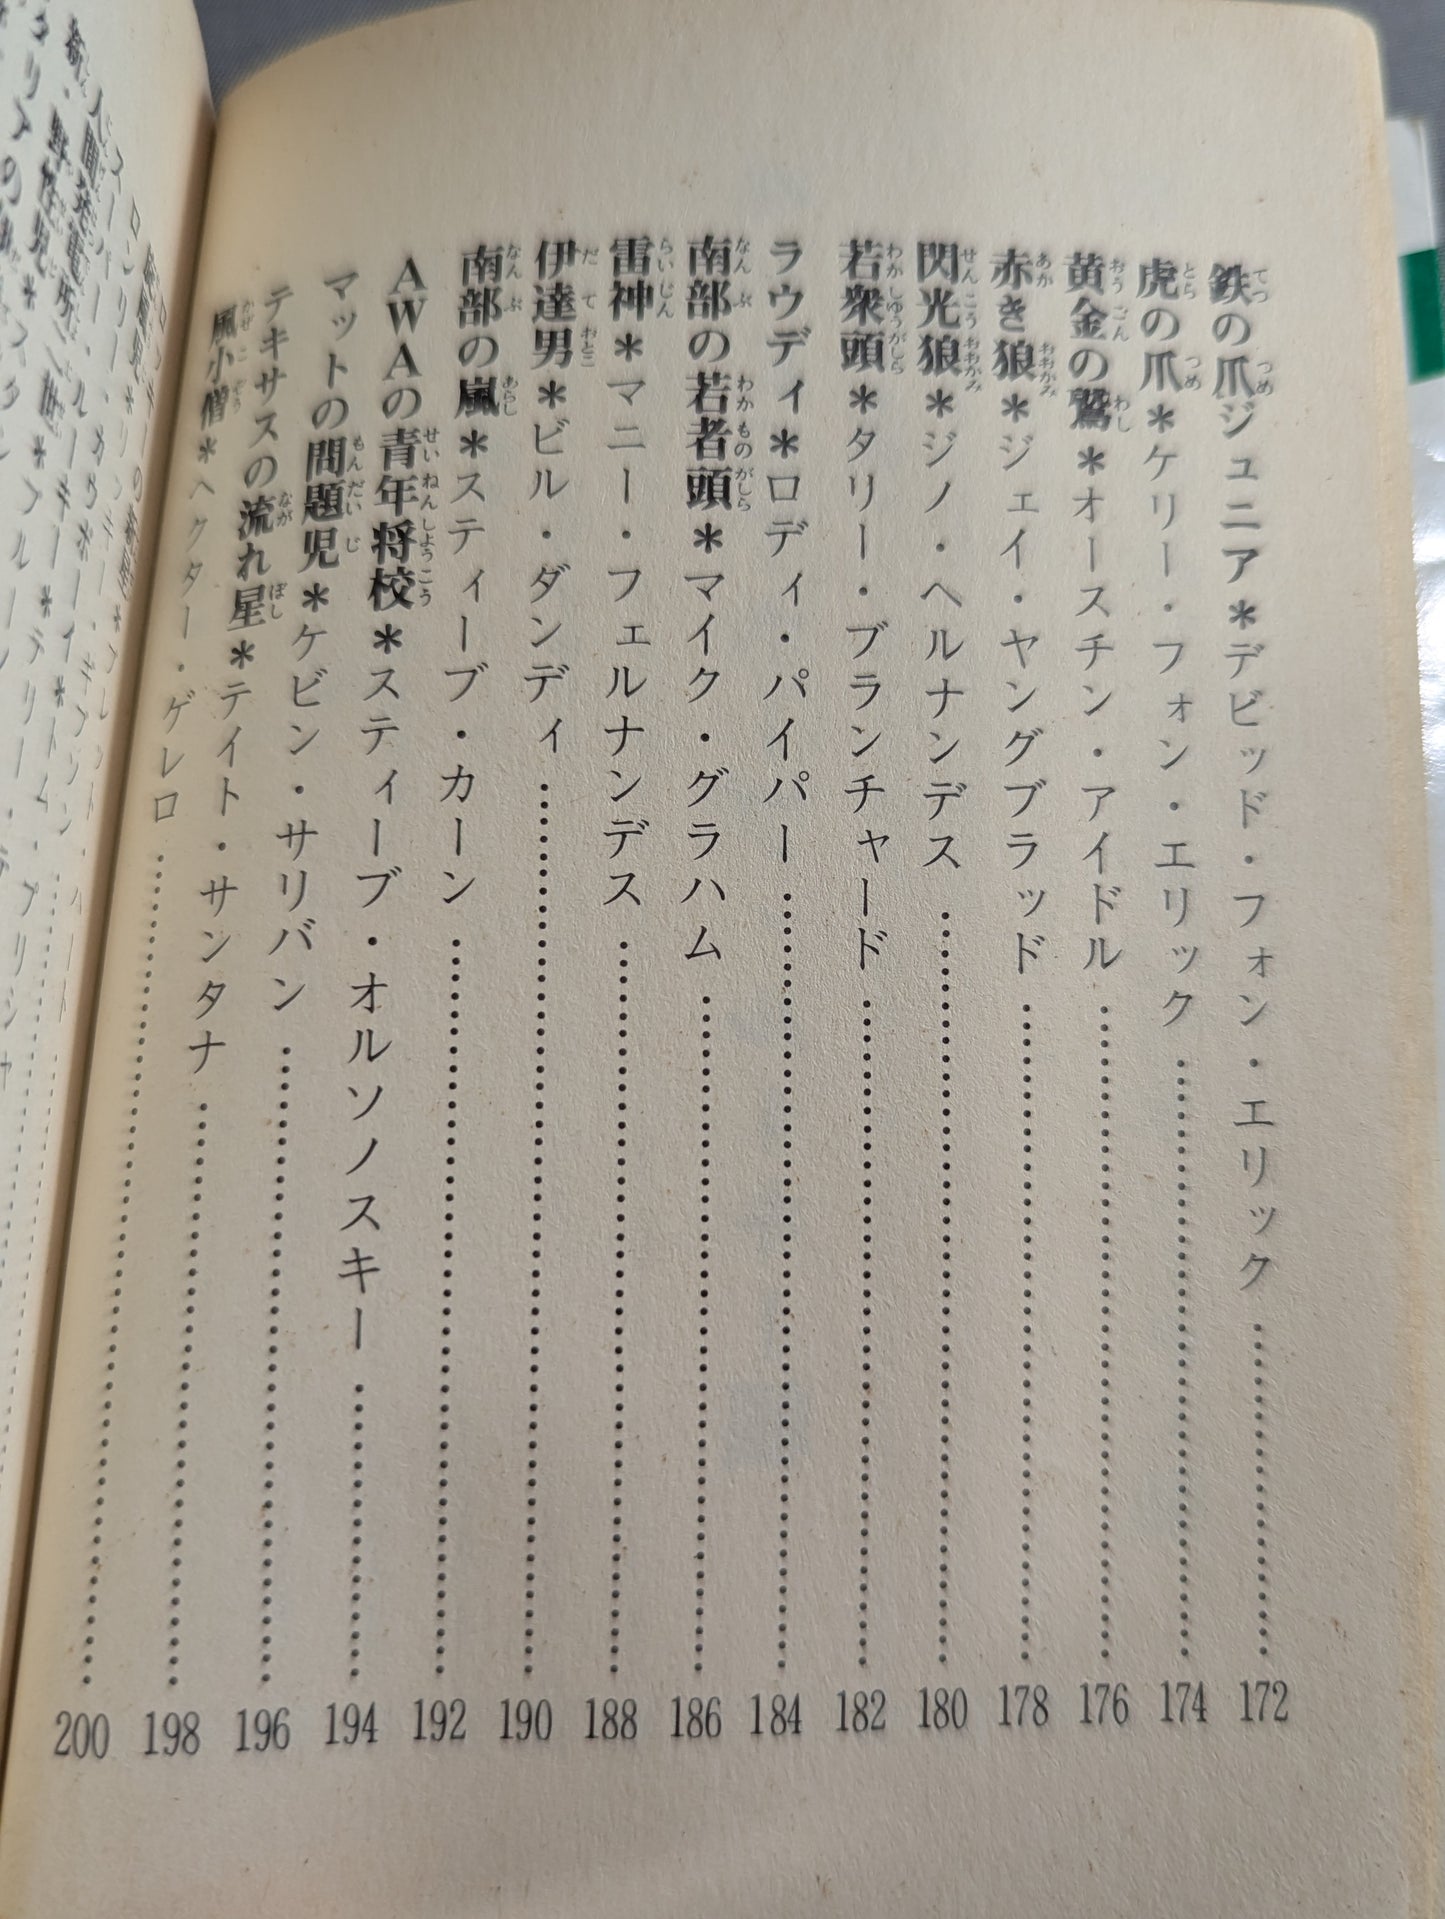 鉄の爪ジュニア＊デビッド・フォン・エリック……172
虎の爪＊ケリー・フォン・エリック……174
黄金の鷲＊オースチン・アイドル……176
赤き狼＊ジェイ・ヤングブラッド……178
閃光狼＊ジノ・ヘルナンデス……180
若衆頭＊タリー・ブランチャード……182
ラウディ＊ロディ・パイパー……184
南部の若者頭＊マイク・グラハム……186
雷神＊マニー・フェルナンデス……188
伊達男＊ビル・ダンディ……190
南部の嵐＊スティーブ・カーン……192
AWAの青年将校＊スティーブ・オルソノスキー……194
マットの問題児＊ケビン・サリバン……196
テキサスの流れ星＊テイト・サンタナ……198
風小僧＊ヘクター・ゲレロ……200